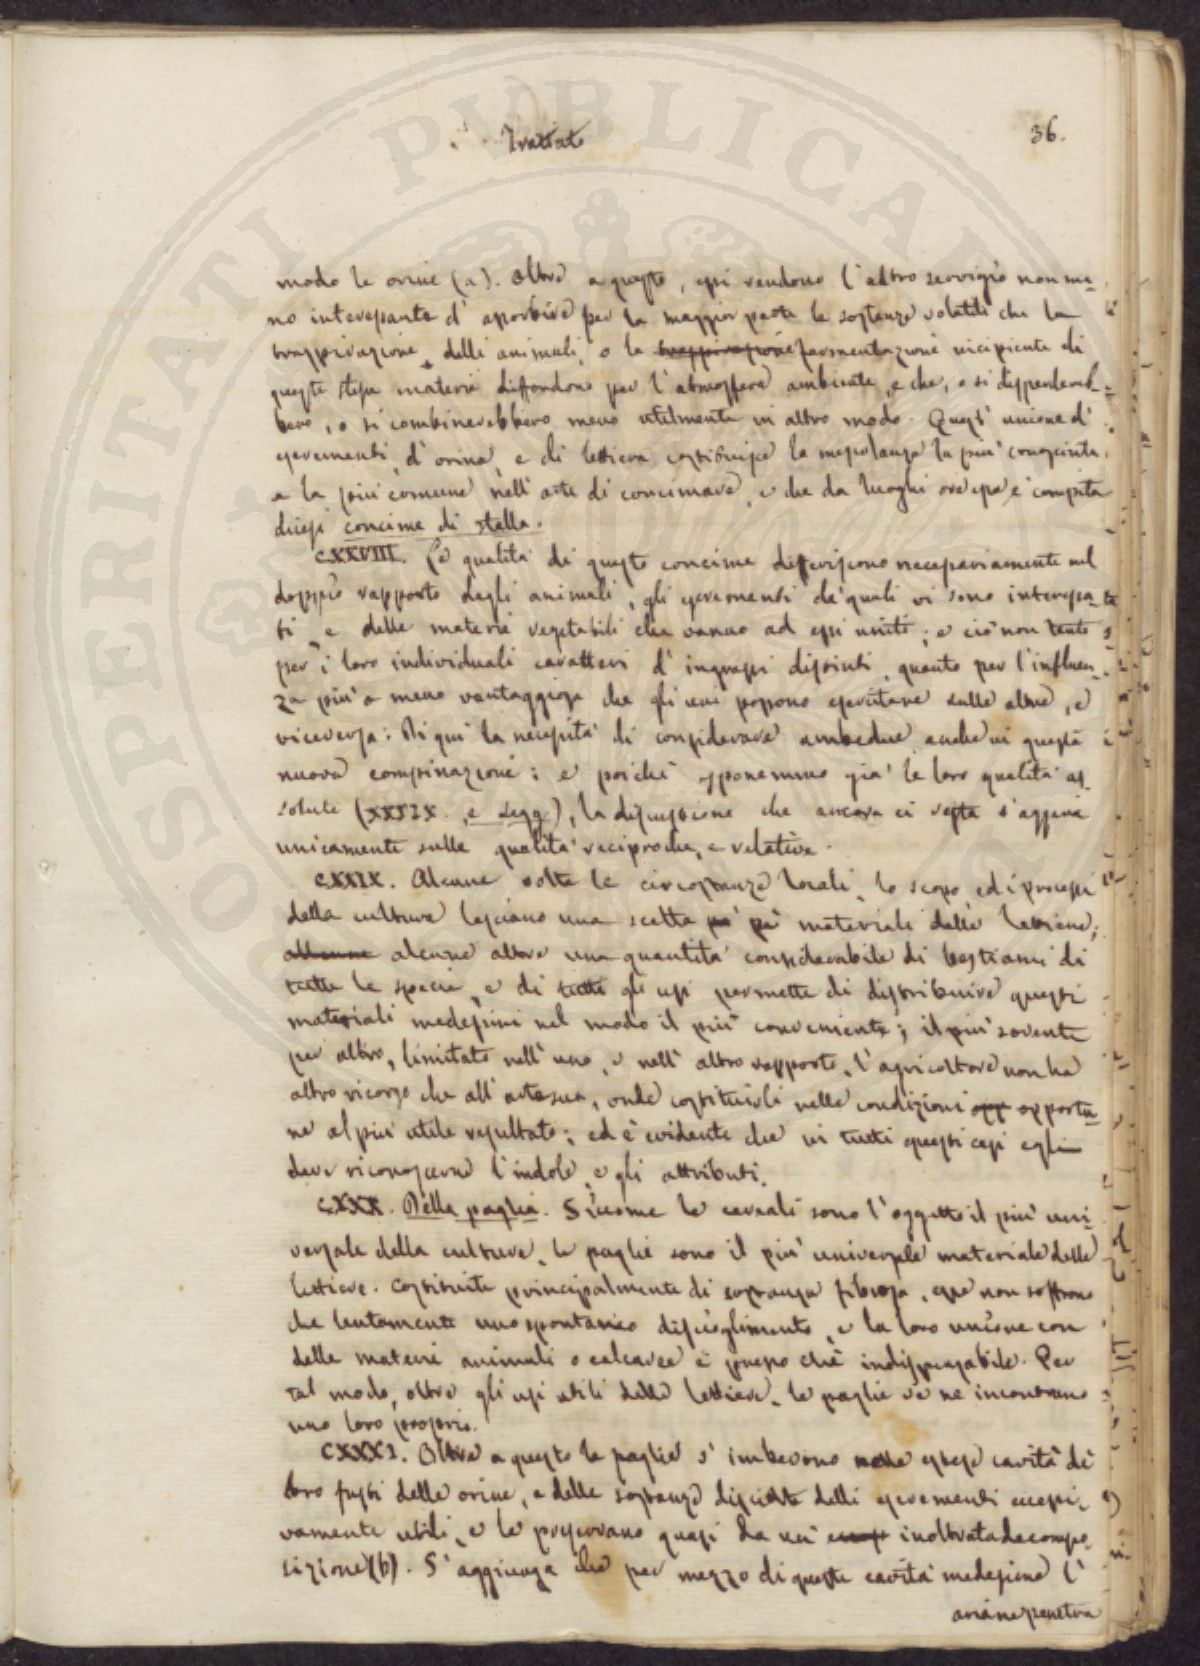 PROSPERITATI PUBLICAE
Trattato
36.
modo le orine (a). Oltre a questo, essi rendono l'altro servigio non me-
no interessante d'assorbire per la maggior parte le sostanze volatili che la
traspirazione delli animali, o la traspirazione fermentazione incipiente di
queste stesse materie diffondono per l'atmosfera ambiente, e che, o si disperdereb-
bero, o si combinerebbero meno utilmente in altro modo. Quest'unione d'
escrementi, d'orina, e di lettiera costituisce la mescolanza la più conosciuta,
e la più comune nell'arte di concimare, e che da luoghi ove essa è compita
dicesi concime di stalla.
CXXVIII. Le qualità di questo concime differiscono necessariamente nel
doppio rapporto degli animali, gli escrementi de' quali vi sono interessa-
ti, e delle materie vegetabili che vanno ad essi unite; e ciò non tanto
per i loro individuali caratteri d'ingrassi distinti, quanto per l'influen-
za più o meno vantaggiosa che gli uni possono esercitare sulle altre, e
viceversa: Di qui la necessità di considerare ambedue anche in questa
nuova combinazione; e poichè esponemmo già le loro qualità as-
solute (XXXIX. e segg.), la discussione che ancora ci resta s'aggira
unicamente sulle qualità reciproche, e relative.
CXXIX. Alcune volte le circostanze locali, lo scopo, ed i processi
della culture lasciano una scelta pe' pe' materiali delle lettiere;
alcune alcune altre una quantità considerabile di bestiami di
tutte le specie, e di tutti gli usi permette di distribuire questi
materiali medesimi nel modo il più conveniente; il più sovente
per altro, limitato nell'uno, e nell'altro rapporto, l'agricoltore non ha
altro ricorso che all'arte sua, onde costituirli nelle condizioni opp opportu-
ne al più utile resultato; ed è evidente che in tutti questi casi egli
deve riconoscerne l'indole, e gli attributi.
CXXX. Della paglia. Siccome le cereali sono l'oggetto il più uni-
versale della culture, le paglie sono il più universale materiale delle
lettiere. Costituite principalmente di sostanza fibrosa, esse non soffrono
che lentamente uno spontaneo discioglimento, e la loro unione con
delle materie animali o calcaree è presso chè indispensabile. Per
tal modo, oltre gli usi utili delle lettiere, le paglie ve ne incontrano
uno loro proprio.
CXXXI. Oltre a questo le paglie s'imbevono nelle estese cavità de'
loro fusti delle orine, e delle sostanze disciolte delli escrementi eccessi-
vamente utili, e le preservano quasi da un' inoltrata decompo-
sizione (b). S'aggiunga che per mezzo di queste cavità medesime l'
aria ne penetra